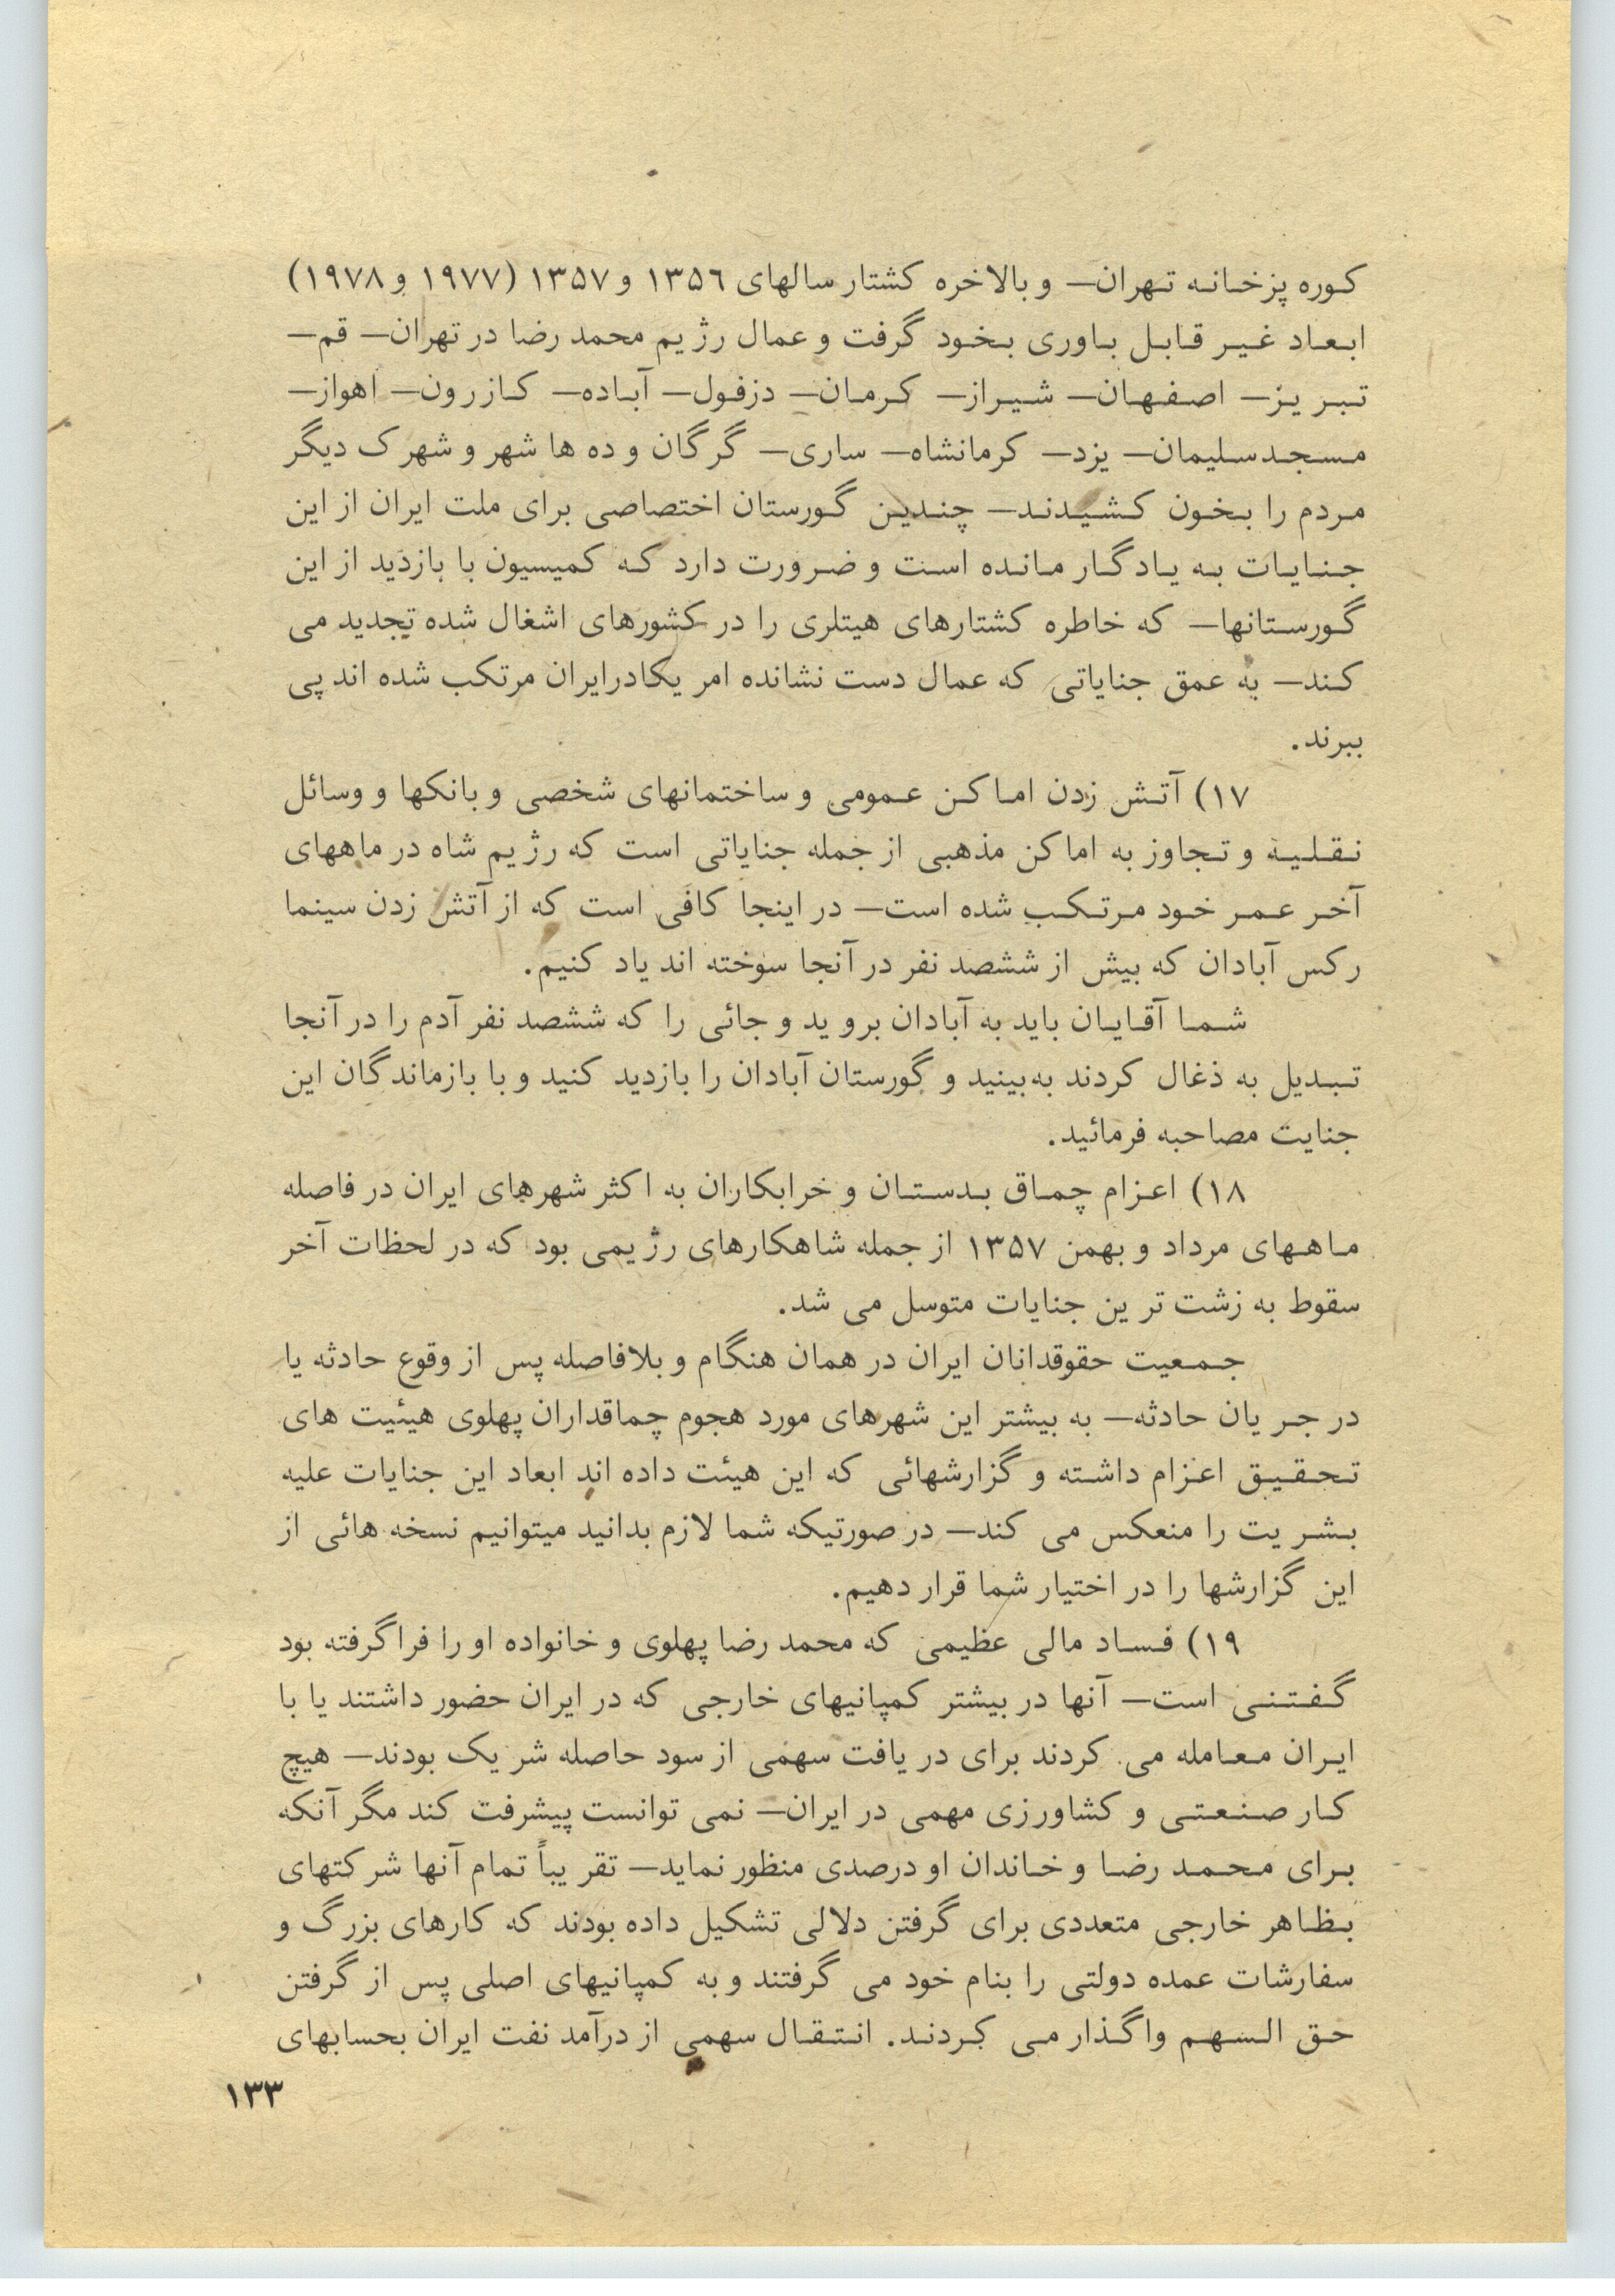 کوره پزخانه تهران— و بالاخره کشتار سالهای ۱۳۵۶ و ۱۳۵۷ (۱۹۷۷ و ۱۹۷۸)
ابعاد غیر قابل باوری بخود گرفت و عمال رژیم محمد رضا در تهران— قم—
تبریز— اصفهان— شیراز— کرمان— دزفول— آباده— کازرون— اهواز—
مسجدسلیمان— یزد— کرمانشاه— ساری— گرگان و ده ها شهر و شهرک دیگر
مردم را بخون کشیدند— چندین گورستان اختصاصی برای ملت ایران از این
جنایات به یادگار مانده است و ضرورت دارد که کمیسیون با بازدید از این
گورستانها— که خاطره کشتارهای هیتلری را در کشورهای اشغال شده تجدید می
کند— به عمق جنایاتی که عمال دست نشانده امریکادرایران مرتکب شده اند پی
ببرند.
۱۷) آتش زدن اماکن عمومی و ساختمانهای شخصی و بانکها و وسائل
نقلیه و تجاوز به اماکن مذهبی از جمله جنایاتی است که رژیم شاه در ماههای
آخر عمر خود مرتکب شده است— در اینجا کافی است که از آتش زدن سینما
رکس آبادان که بیش از ششصد نفر در آنجا سوخته اند یاد کنیم.
شما آقایان باید به آبادان بروید و جائی را که ششصد نفر آدم را در آنجا
تبدیل به ذغال کردند به‌بینید و گورستان آبادان را بازدید کنید و با بازماندگان این
جنایت مصاحبه فرمائید.
۱۸) اعزام چماق بدستان و خرابکاران به اکثر شهرهای ایران در فاصله
ماههای مرداد و بهمن ۱۳۵۷ از جمله شاهکارهای رژیمی بود که در لحظات آخر
سقوط به زشت ترین جنایات متوسل می شد.
جمعیت حقوقدانان ایران در همان هنگام و بلافاصله پس از وقوع حادثه یا
در جریان حادثه— به بیشتر این شهرهای مورد هجوم چماقداران پهلوی هیئیت های
تحقیق اعزام داشته و گزارشهائی که این هیئت داده اند ابعاد این جنایات علیه
بشریت را منعکس می کند— در صورتیکه شما لازم بدانید میتوانیم نسخه هائی از
این گزارشها را در اختیار شما قرار دهیم.
۱۹) فساد مالی عظیمی که محمد رضا پهلوی و خانواده او را فراگرفته بود
گفتنی است— آنها در بیشتر کمپانیهای خارجی که در ایران حضور داشتند یا با
ایران معامله می کردند برای دریافت سهمی از سود حاصله شریک بودند— هیچ
کار صنعتی و کشاورزی مهمی در ایران— نمی توانست پیشرفت کند مگر آنکه
برای محمد رضا و خاندان او درصدی منظور نماید— تقریباً تمام آنها شرکتهای
بظاهر خارجی متعددی برای گرفتن دلالی تشکیل داده بودند که کارهای بزرگ و
سفارشات عمده دولتی را بنام خود می گرفتند و به کمپانیهای اصلی پس از گرفتن
حق السهم واگذار می کردند. انتقال سهمی از درآمد نفت ایران بحسابهای
۱۳۳